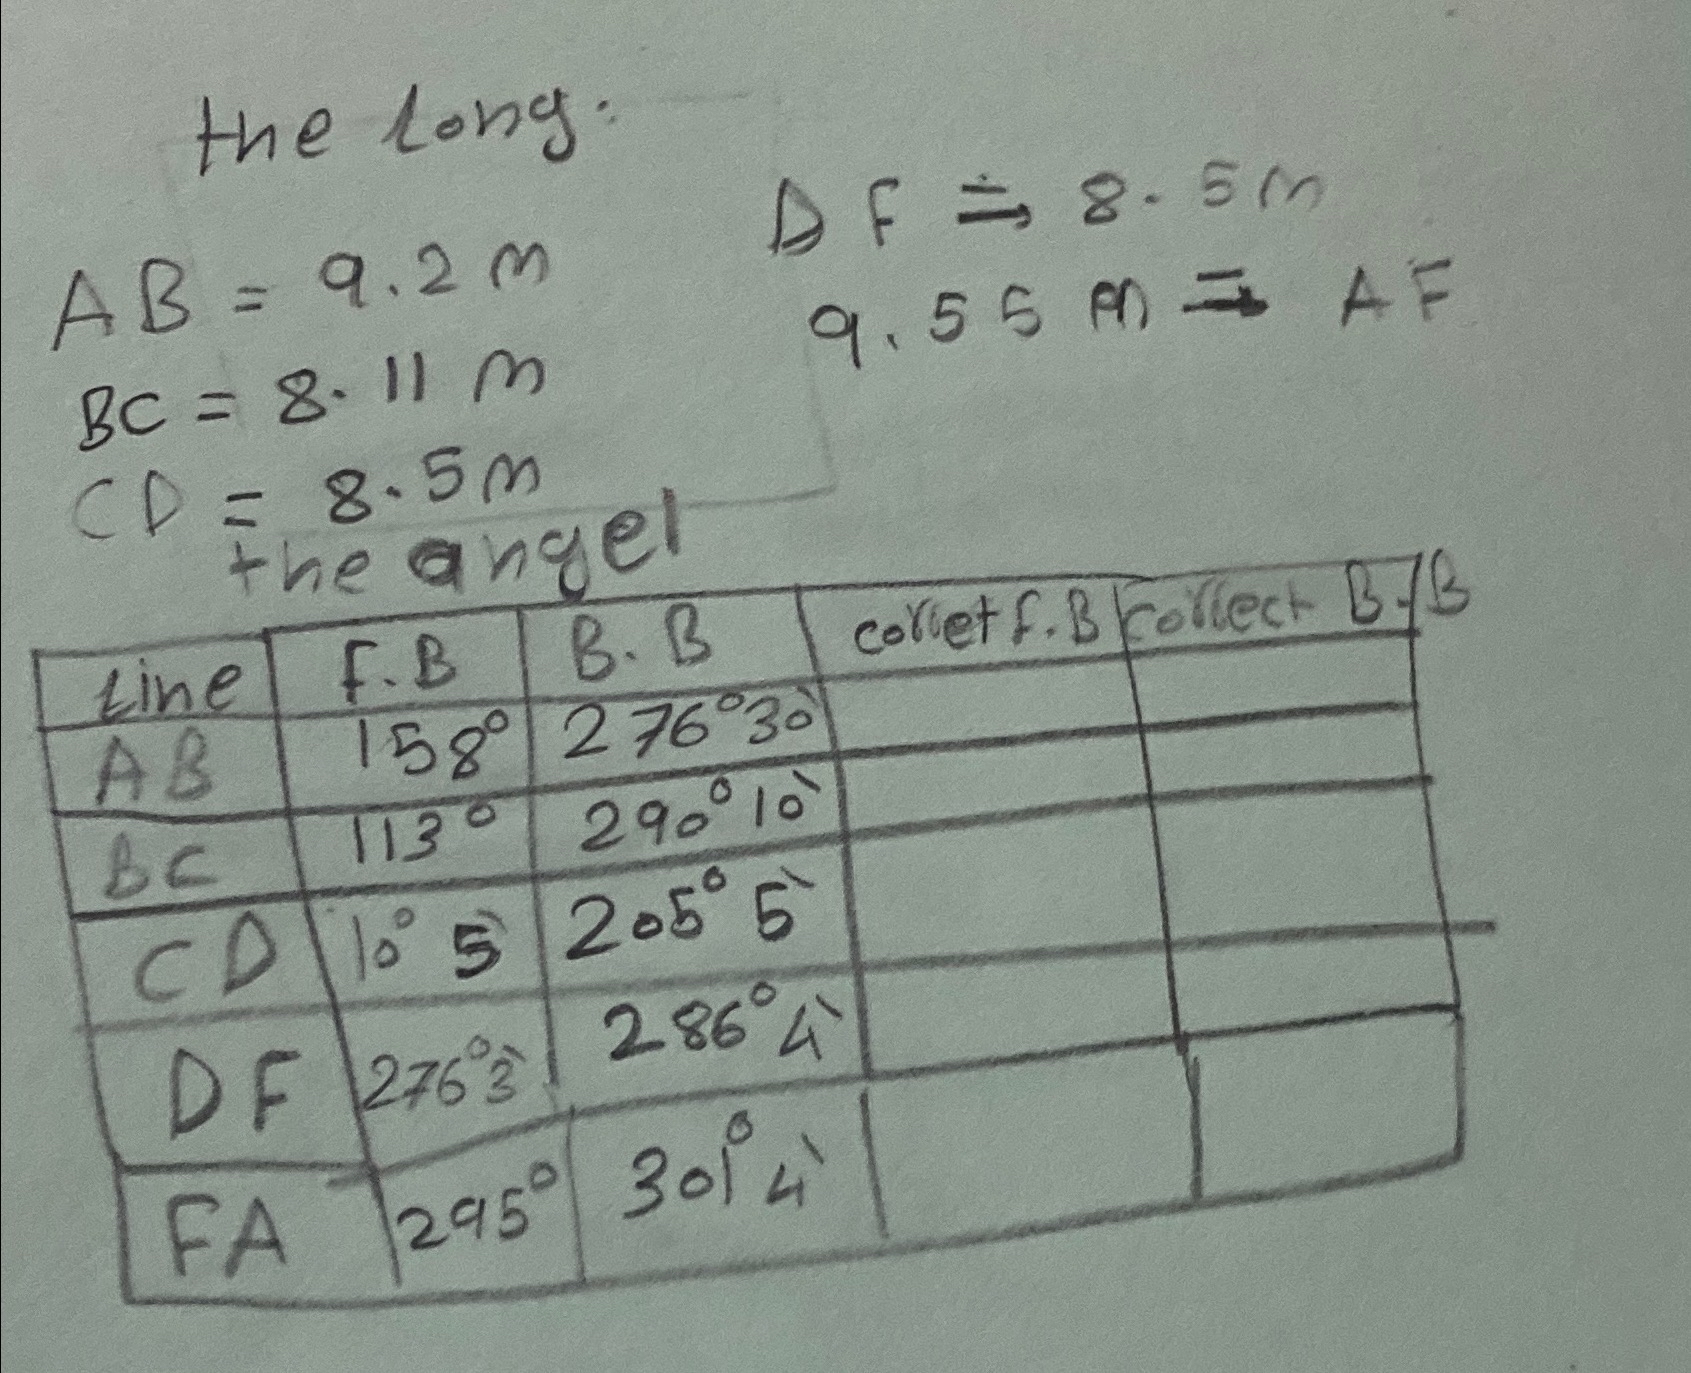 the long:
AB = 9.2 m
BC = 8.11 m
CD = 8.5 m
DF = 8.5 m
9.55 m = AF
the angel
Line F.B B.B corret f.B correct B.B
AB 158° 276°30`
BC 113° 290°10`
CD 10° 5` 205° 5`
DF 276°3` 286°4`
FA 295° 301°4`